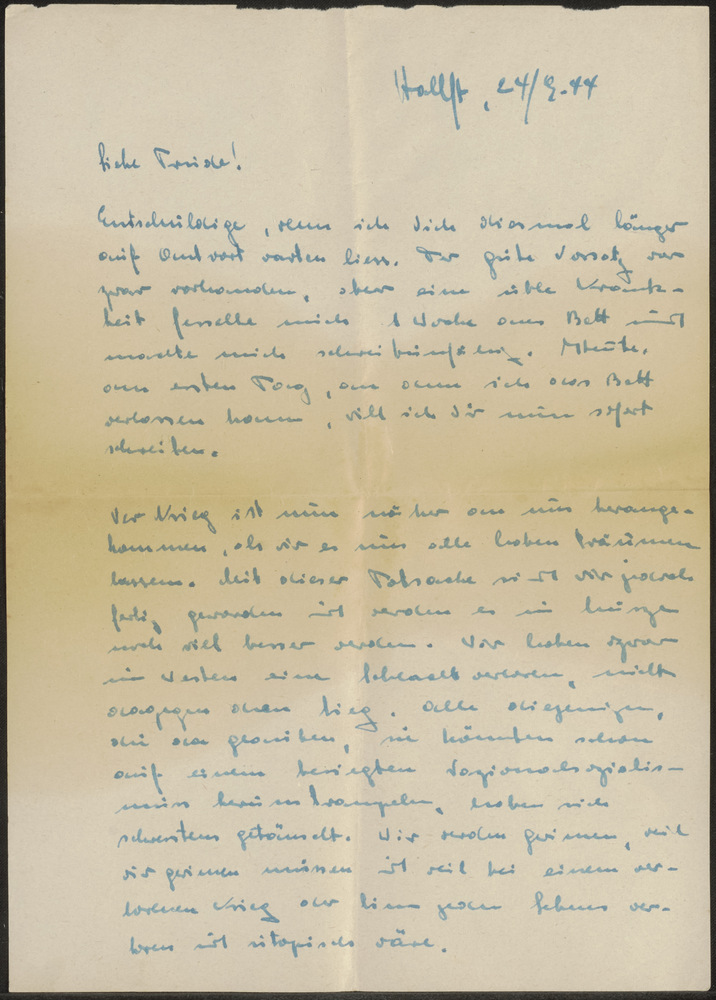 Hallst, 24/9.44
Liebe Trude!
Entschuldige, wenn ich dich diesmal länger
auf Antwort warten liess. Der gute Vorsatz war
zwar vorhanden, aber eine üble Krank-
heit fesselte mich 1 Woche ans Bett und
machte mich schreibunfähig. Heute,
am ersten Tag, an dem ich das Bett
verlassen kann, will ich dir nun sofort
schreiben.
Der Krieg ist nun näher an uns herange-
kommen, als wir es uns alle haben träumen
lassen. Mit dieser Tatsache sind wir jedoch
fertig geworden und werden es in kürze
noch viel besser werden. Wir haben zwar
im Westen eine Schlacht verloren, nicht
dagegen den Sieg. Alle diejenigen,
die da glaubten, sie könnten schon
auf einem besiegten Nazionalsozialis-
mus herumtrampeln, haben sich
schwerstens getäuscht. Wir werden gwinnen, weil
wir gwinnen müssen und weil bei einem ver-
lorenen Krieg der Sinn jeden Lebens ver-
loren und utopisch wäre.